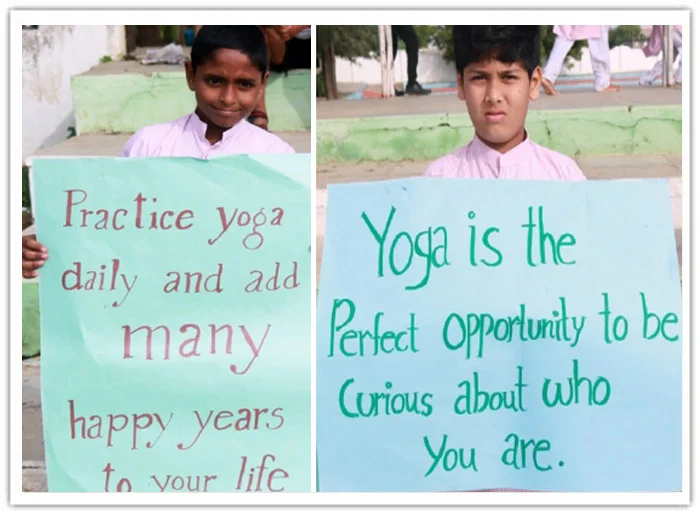 Practice yoga
daily and add
many
happy years
to your life
Yoga is the
Perfect opportunity to be
Curious about who
You are.